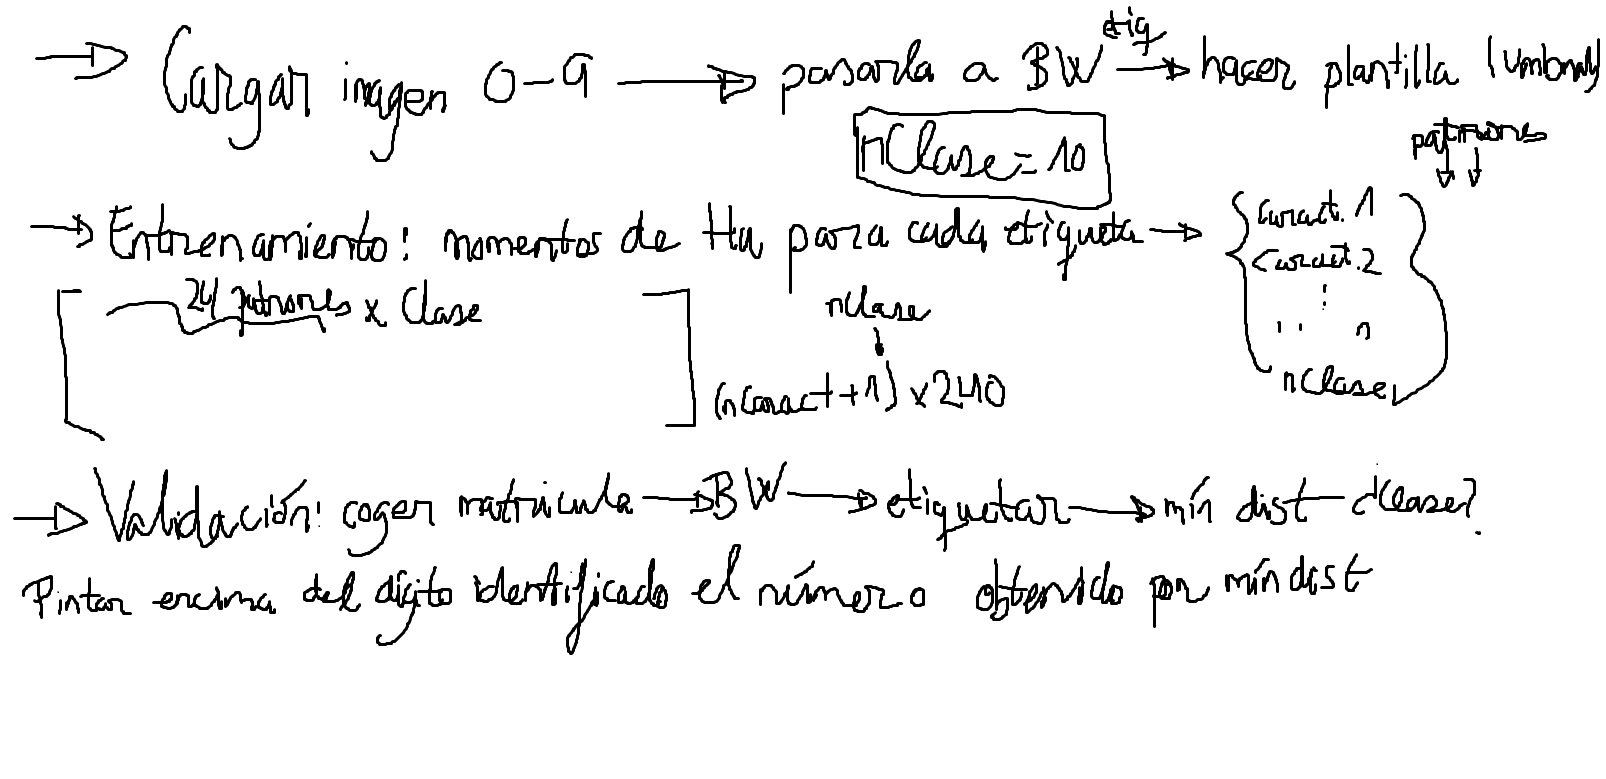 → Cargar imagen 0-9 → pasarla a BW etiq → hacer plantilla (umbral)
nClase = 10
patrones
→ Entrenamiento: momentos de Hu para cada etiqueta → caract. 1
caract. 2
⋮
.. n
nClase
24 patrones x Clase
nClase
(nCaract + 1) x 240
→ Validación: coger matricula → BW → etiquetar → mín dist → ¿Clase?
Pintar encima del dígito identificado el número obtenido por mín dist